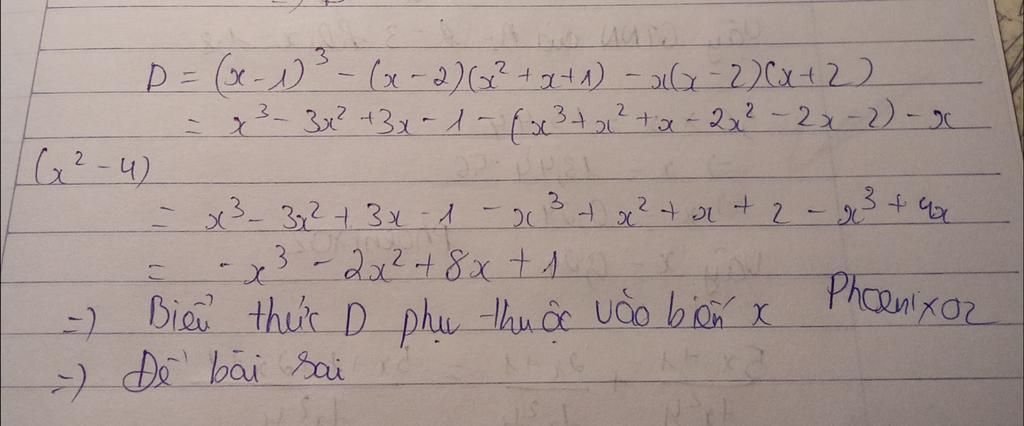 D = (x - 1)³ - (x - 2)(x² + x + 1) - x(x - 2)(x + 2)
= x³ - 3x² + 3x - 1 - (x³ + x² + x - 2x² - 2x - 2) - x
(x² - 4)
= x³ - 3x² + 3x - 1 - x³ + x² + x + 2 - x³ + 4x
= - x³ - 2x² + 8x + 1
=) Biểu thức D phụ thuộc vào biến x Phoenix02
=) Đề bài sai